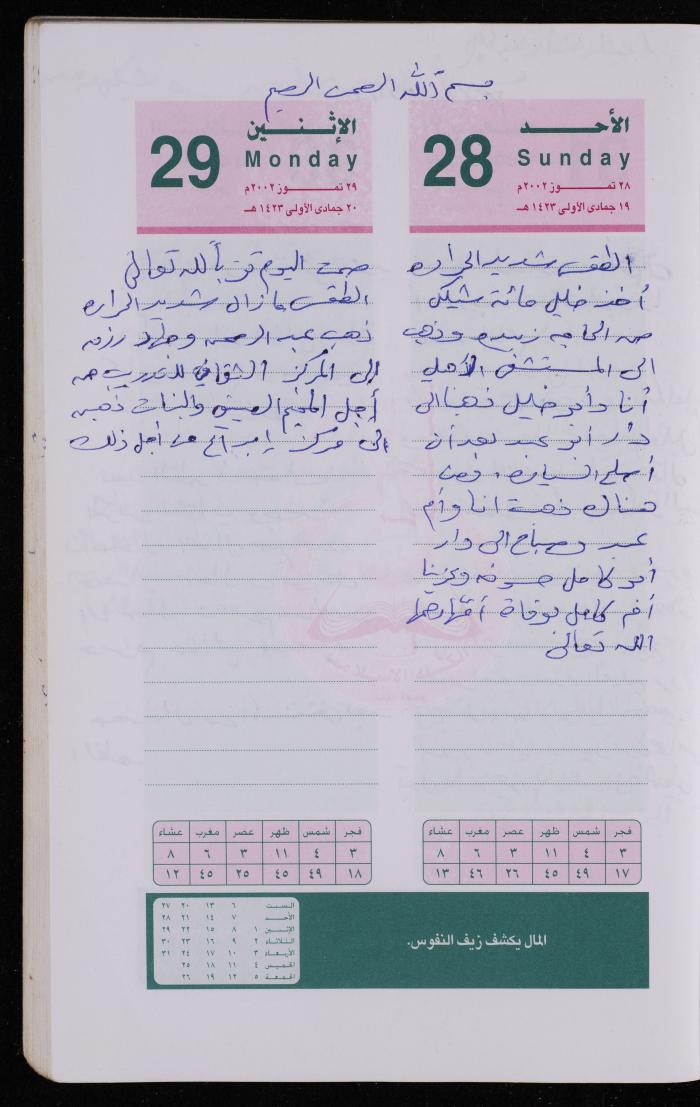 بسم الله الرحمن الرحيم
الأحد
28
Sunday
٢٨ تموز ٢٠٠٢م
١٩ جمادى الأولى ١٤٢٣هـ
الطقس شديد الحرارة
أخذ خليل مائة شيكل
من الحاجه زبيده وذهب
الى المستشفى الأهلي
أنا وأم خليل ذهبنا الى
دار أبو عبد بعد أن
أصلح السيارة، ومن
هناك ذهبت انا وأم
عبد وصباح الى دار
أبو كامل صوفه وعزينا
أم كامل بوفاة أمها رحمها
الله تعالى
الإثنين
29
Monday
٢٩ تموز ٢٠٠٢م
٢٠ جمادى الأولى ١٤٢٣هـ
صمت اليوم قربة لله تعالى
الطقس مازال شديد الحراره
ذهب عبد الرحمن وجهاد رزمه
الى المركز الثقافي للتدريب من
أجل المخيم الصيفي والبنات ذهبن
الى مركز إسراج من أجل ذلك
فجر شمس ظهر عصر مغرب عشاء
٣ ٤ ١١ ٣ ٦ ٨
١٧ ٤٩ ٤٥ ٢٦ ٤٦ ١٣
فجر شمس ظهر عصر مغرب عشاء
٣ ٤ ١١ ٣ ٦ ٨
١٨ ٤٩ ٤٥ ٢٥ ٤٥ ١٢
المال يكشف زيف النفوس.
السبت ٦ ١٣ ٢٠ ٢٧
الأحد ٧ ١٤ ٢١ ٢٨
الإثنين ١ ٨ ١٥ ٢٢ ٢٩
الثلاثاء ٢ ٩ ١٦ ٢٣ ٣٠
الأربعاء ٣ ١٠ ١٧ ٢٤ ٣١
الخميس ٤ ١١ ١٨ ٢٥
الجمعة ٥ ١٢ ١٩ ٢٦